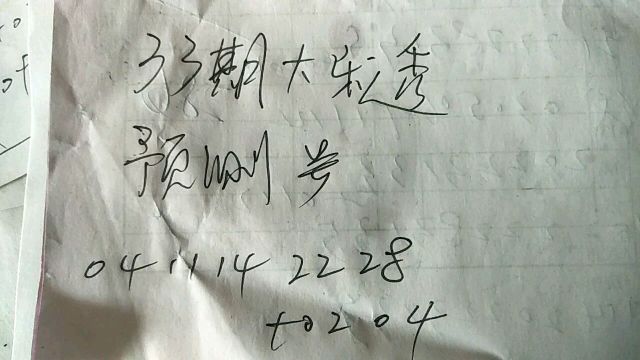 33期大乐透
预测号
04 11 14 22 28
+02 04